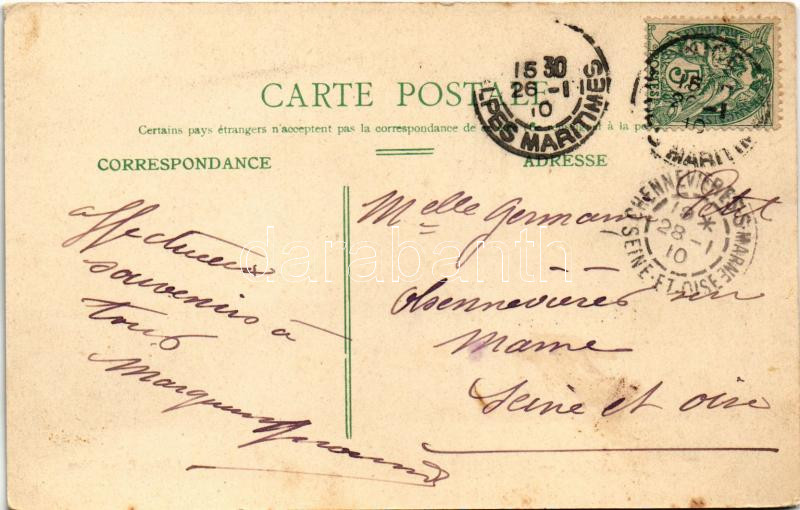 CARTE POSTALE
Certains pays étrangers n'acceptent pas la correspondance de
CORRESPONDANCE
ADRESSE
15 30
26 -1
10
ALPES MARITIMES
15
-1
10
MARITIM
CHENNEVIÈRES-S-MARNE
19 *
28 -1
10
SEINE-ET-OISE
affectueux
souvenirs à
tous
Marguerite
Melle Germaine Petit
à
Chennevières sur
Marne
Seine et oise
darabanth